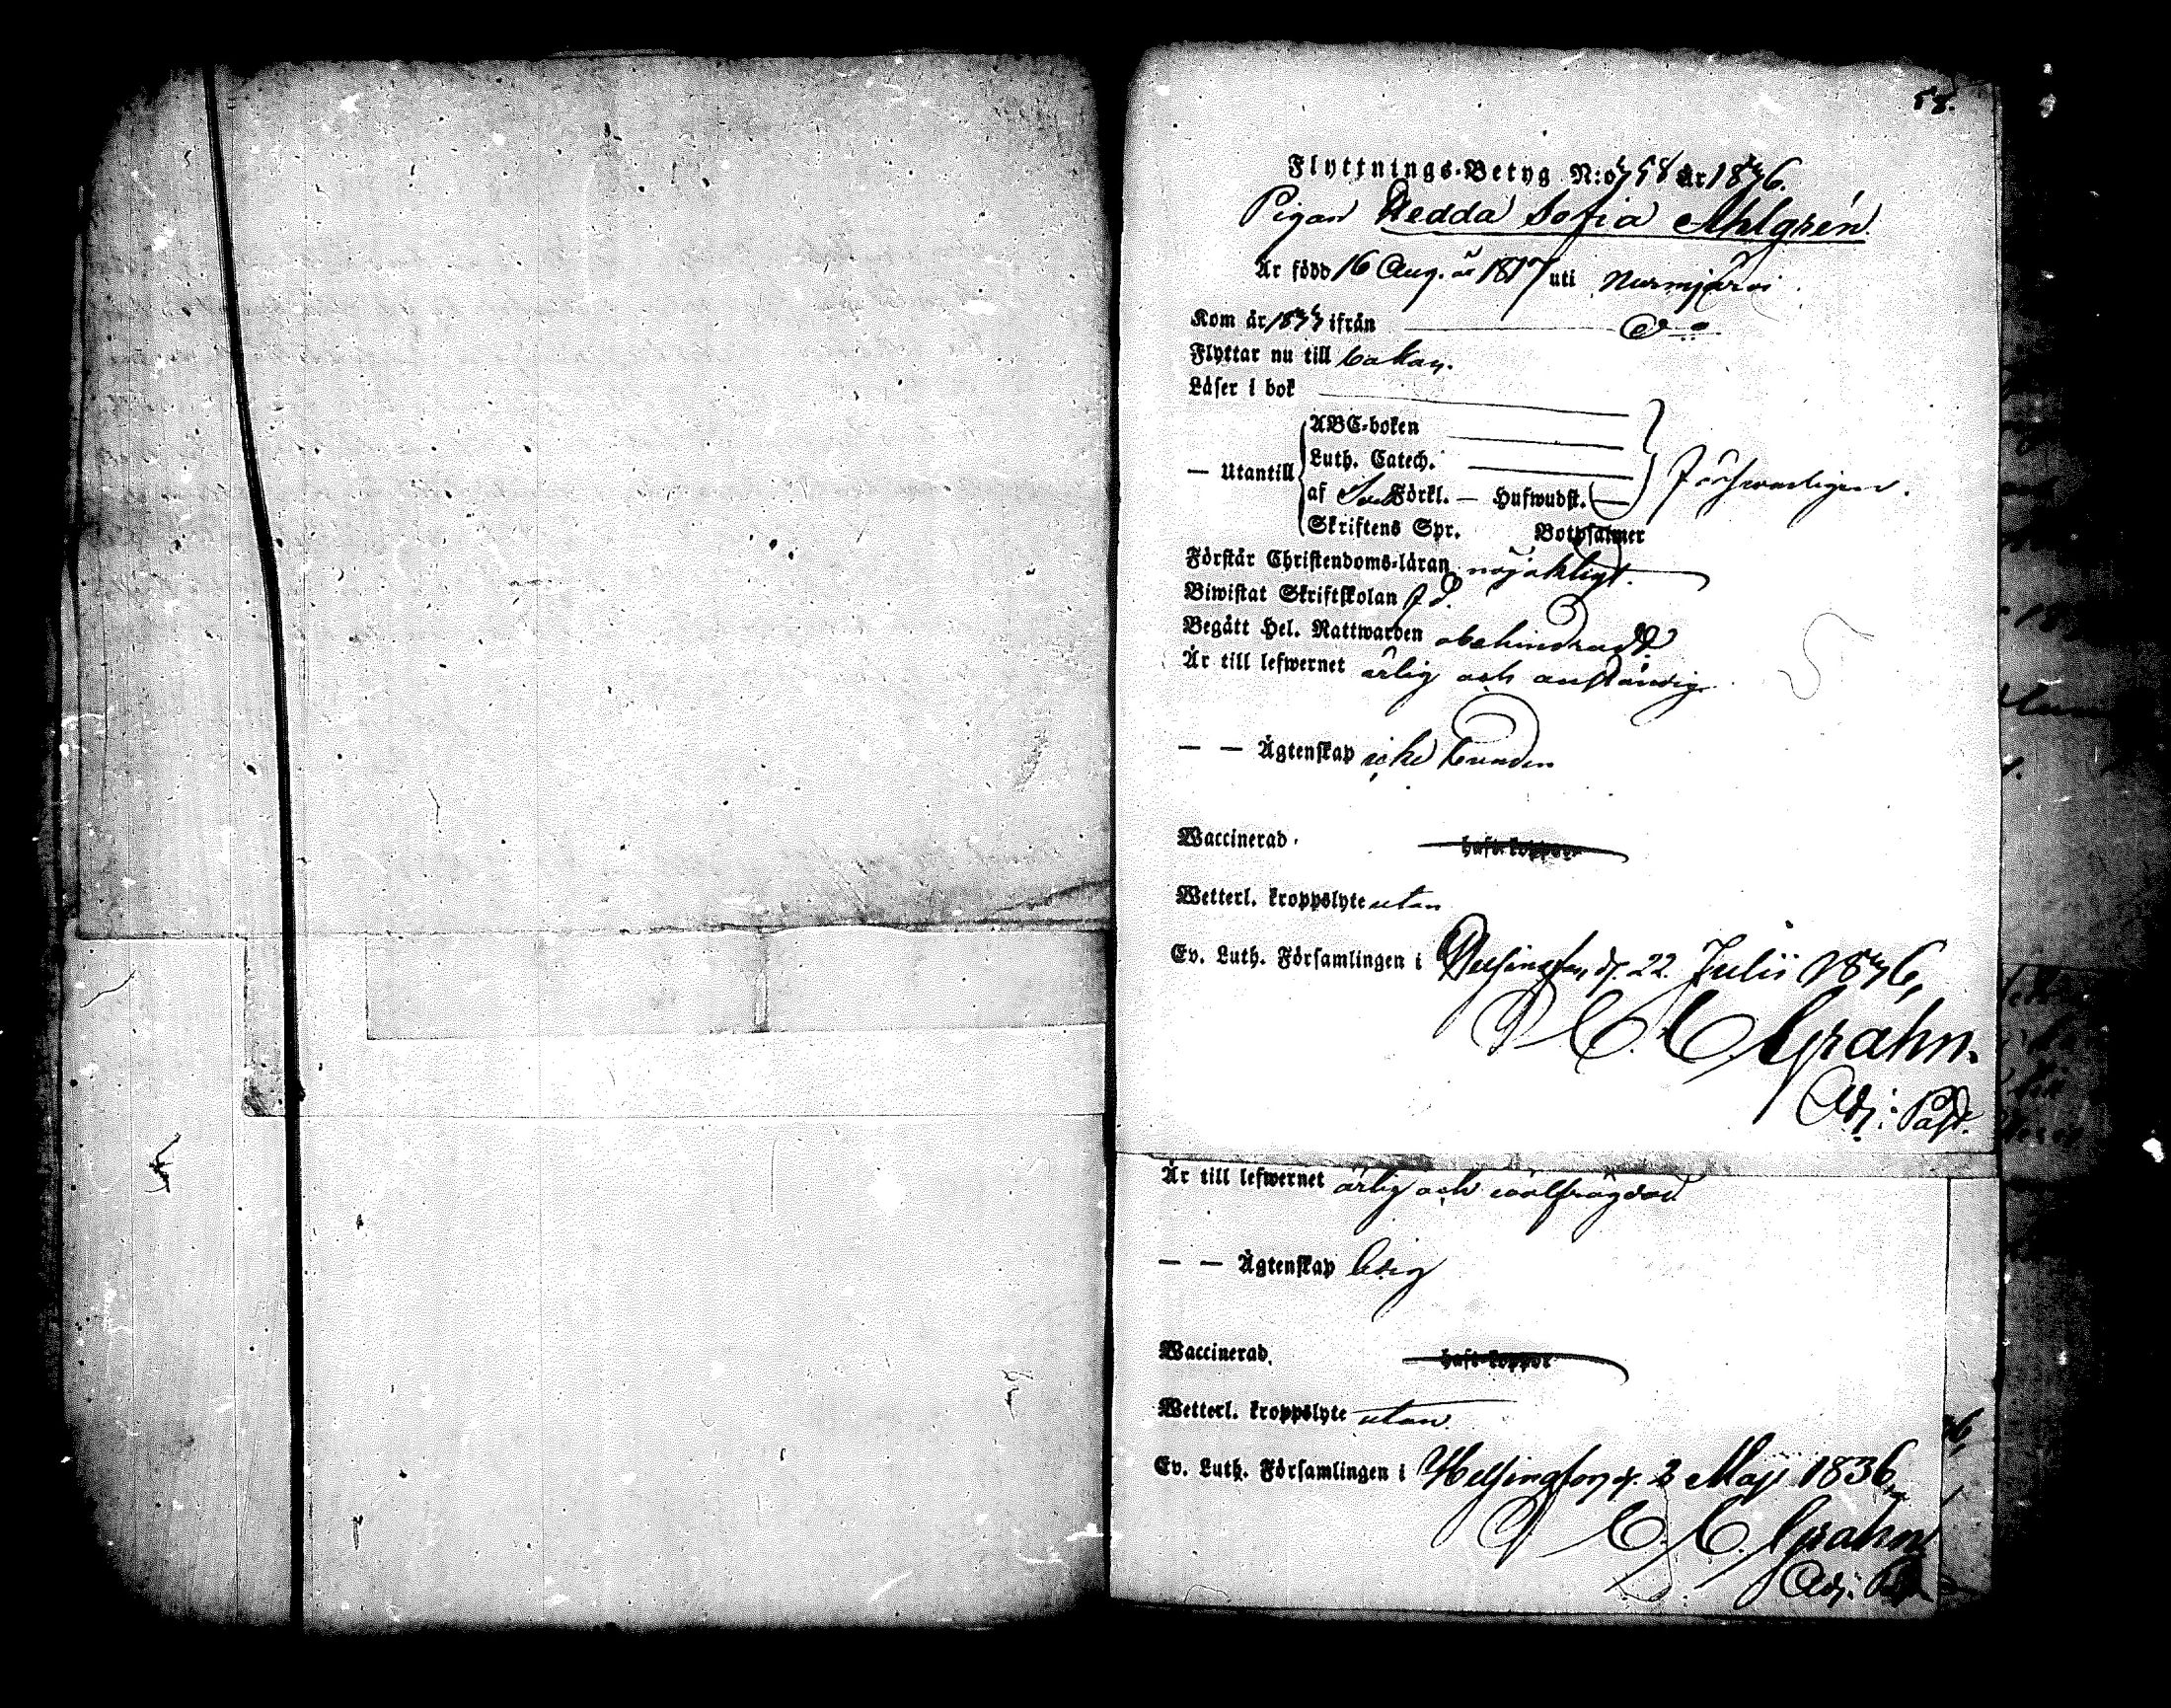 58.
Flyttnings-Betyg N:o 358 år 1836.
Pigan Hedda Sofia Ahlgrén.
Är född 16 Aug. år 1817 uti Nurmijärvi.
Kom år 1833 ifrån
Flyttar nu till
Läser i bok
ABC-boken
— Utantill Luth. Catech.
af Sveb. Förkl. — Hufwudst. — försvarligen.
Skriftens Spr. Botpsalmer
Förstår Christendoms-läran nöjaktligt.
Biwistat Skriftskolan
Begått Hel. Nattwarden obehindradt
Är till lefwernet ärlig och anständig
— — Ägtenskap icke bunden
Waccinerad. haft koppor
Wetterl. kroppslyte utan
Ev. Luth. Församlingen i Helsingfors d. 22 Julii 1836,
C. C. Grahn.
Adj: Past.
Är till lefwernet ärlig och wälfrägdad
— — Ägtenskap ledig
Waccinerad. haft koppor
Wetterl. kroppslyte utan
Ev. Luth. Församlingen i Helsingfors d. 3 Maji 1836,
C. C. Grahn
Adj: